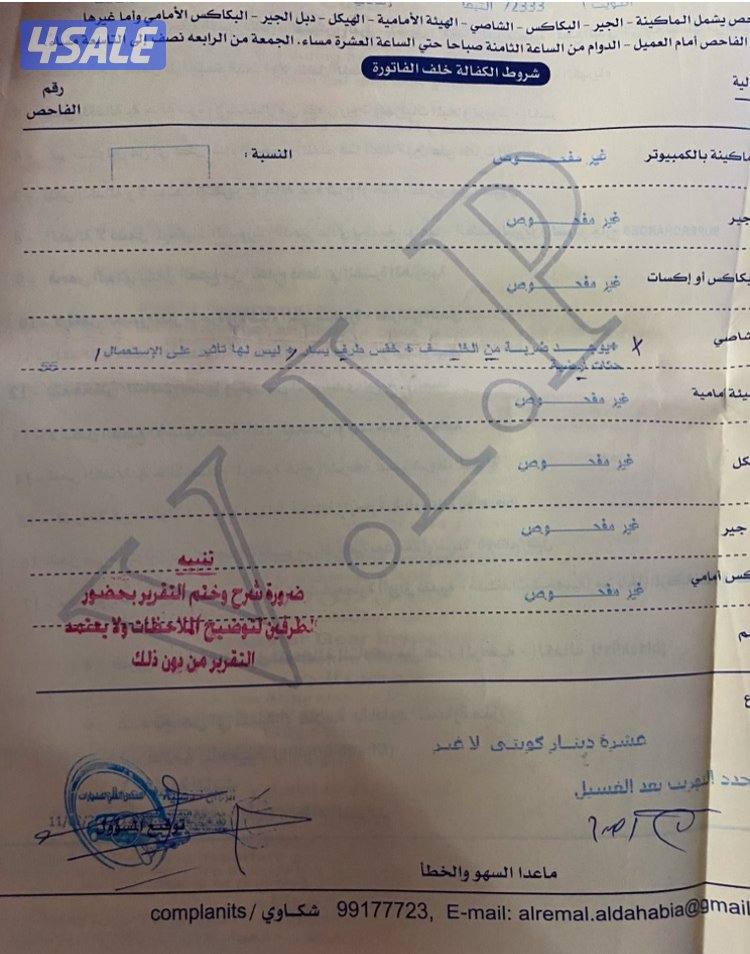 4SALE
حص يشمل الماكينة - الجير - البكاكس - الشاصي - الهيئة الأمامية - الهيكل - دبل الجير - البكاكس الأمامي وأما غيرها
الفاحص أمام العميل - الدوام من الساعة الثامنة صباحا حتي الساعة العشرة مساء. الجمعة من الرابعه نصف إلى التاسعة
شروط الكفالة خلف الفاتورة
رقم الفاحص
ماكينة بالكمبيوتر غير مفحـوص النسبة:
جير غير مفحـوص
بكاكس أو إكسات غير مفحـوص
شاصي + يوجد ضربة من الخلـف + خفس طرف يسار / ليس لها تأثير على الإستعمال /
حتات أرضية 55
ينة إمامية غير مفحـوص
كل غير مفحـوص
جير غير مفحـوص
كس أمامي غير مفحـوص
تنبيه
ضرورة شرح وختم التقرير بحضور
الطرفين لتوضيح الملاحظات ولا يعتمد
التقرير من دون ذلك
V.I.P
عشرة دينار كويتي لا غير
بعد الغسيل
توقيع المسؤول
ماعدا السهو والخطأ
complanits / شكاوي 99177723, E-mail: alremal.aldahabia@gmail